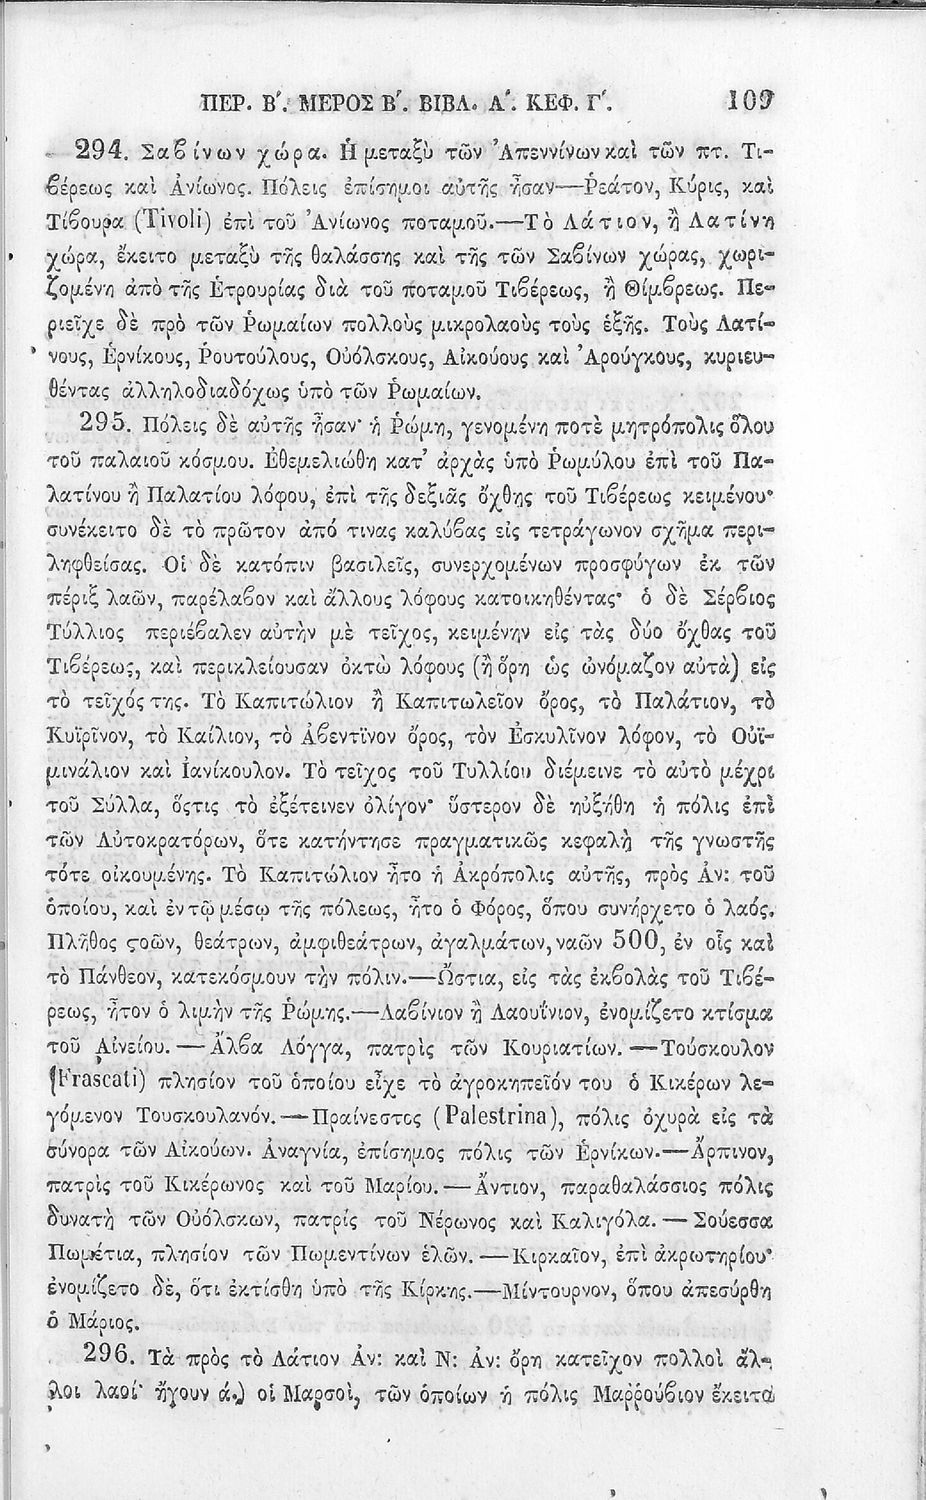 ΠΕΡ. Β΄. ΜΕΡΟΣ Β΄. ΒΙΒΛ. Α΄. ΚΕΦ. Γ΄. 109
294. Σαϐίνων χώρα. Ἡ μεταξὺ τῶν Ἀπεννίνων καὶ τῶν πτ. Τι-
ϐέρεως καὶ Ἀνίωνος. Πόλεις ἐπίσημοι αὐτῆς ἦσαν—Ῥεάτον, Κύρις, καὶ
Τίβουρα (Tivoli) ἐπὶ τοῦ Ἀνίωνος ποταμοῦ.—Τὸ Λάτιον, ἢ Λατίνη
χώρα, ἔκειτο μεταξὺ τῆς θαλάσσης καὶ τῆς τῶν Σαϐίνων χώρας, χωρι-
ζομένη ἀπὸ τῆς Ἑτρουρίας διὰ τοῦ ποταμοῦ Τιϐέρεως, ἢ Θίμϐρεως. Πε-
ριεῖχε δὲ πρὸ τῶν Ῥωμαίων πολλοὺς μικρολαοὺς τοὺς ἑξῆς. Τοὺς Λατί-
νους, Ἑρνίκους, Ῥουτούλους, Οὐόλσκους, Αἰκούους καὶ Ἀρούγκους, κυριευ-
θέντας ἀλληλοδιαδόχως ὑπὸ τῶν Ῥωμαίων.
295. Πόλεις δὲ αὐτῆς ἦσαν· ἡ Ῥώμη, γενομένη ποτὲ μητρόπολις ὅλου
τοῦ παλαιοῦ κόσμου. Ἐθεμελιώθη κατ' ἀρχὰς ὑπὸ Ῥωμύλου ἐπὶ τοῦ Πα-
λατίνου ἢ Παλατίου λόφου, ἐπὶ τῆς δεξιᾶς ὄχθης τοῦ Τιϐέρεως κειμένου·
συνέκειτο δὲ τὸ πρῶτον ἀπό τινας καλύϐας εἰς τετράγωνον σχῆμα περι-
ληφθείσας. Οἱ δὲ κατόπιν βασιλεῖς, συνερχομένων προσφύγων ἐκ τῶν
πέριξ λαῶν, παρέλαϐον καὶ ἄλλους λόφους κατοικηθέντας· ὁ δὲ Σέρϐιος
Τύλλιος περιέϐαλεν αὐτὴν μὲ τεῖχος, κειμένην εἰς τὰς δύο ὄχθας τοῦ
Τιϐέρεως, καὶ περικλείουσαν ὀκτὼ λόφους (ἢ ὄρη ὡς ὠνόμαζον αὐτὰ) εἰς
τὸ τεῖχός της. Τὸ Καπιτώλιον ἢ Καπιτωλεῖον ὄρος, τὸ Παλάτιον, τὸ
Κυϊρῖνον, τὸ Καίλιον, τὸ Ἀϐεντῖνον ὄρος, τὸν Ἐσκυλῖνον λόφον, τὸ Οὐϊ-
μινάλιον καὶ Ἰανίκουλον. Τὸ τεῖχος τοῦ Τυλλίου διέμεινε τὸ αὐτὸ μέχρι
τοῦ Σύλλα, ὅςτις τὸ ἐξέτεινεν ὀλίγον· ὕστερον δὲ ηὐξήθη ἡ πόλις ἐπὶ
τῶν Αὐτοκρατόρων, ὅτε κατήντησε πραγματικῶς κεφαλὴ τῆς γνωστῆς
τότε οἰκουμένης. Τὸ Καπιτώλιον ἦτο ἡ Ἀκρόπολις αὐτῆς, πρὸς Ἀν: τοῦ
ὁποίου, καὶ ἐν τῷ μέσῳ τῆς πόλεως, ἦτο ὁ Φόρος, ὅπου συνήρχετο ὁ λαός.
Πλῆθος ϛοῶν, θεάτρων, ἀμφιθεάτρων, ἀγαλμάτων, ναῶν 500, ἐν οἷς καὶ
τὸ Πάνθεον, κατεκόσμουν τὴν πόλιν.—Ὤστια, εἰς τὰς ἐκϐολὰς τοῦ Τιϐέ-
ρεως, ἦτον ὁ λιμὴν τῆς Ῥώμης.—Λαϐίνιον ἢ Λαουΐνιον, ἐνομίζετο κτίσμα
τοῦ Αἰνείου.—Ἄλϐα Λόγγα, πατρὶς τῶν Κουριατίων.—Τούσκουλον
(Frascati) πλησίον τοῦ ὁποίου εἶχε τὸ ἀγροκηπεῖόν του ὁ Κικέρων λε-
γόμενον Τουσκουλανόν.—Πραίνεστος (Palestrina), πόλις ὀχυρὰ εἰς τὰ
σύνορα τῶν Αἰκούων. Ἀναγνία, ἐπίσημος πόλις τῶν Ἑρνίκων.—Ἄρπινον,
πατρὶς τοῦ Κικέρωνος καὶ τοῦ Μαρίου.—Ἄντιον, παραθαλάσσιος πόλις
δυνατὴ τῶν Οὐόλσκων, πατρίς τοῦ Νέρωνος καὶ Καλιγόλα.—Σούεσσα
Πωμέτια, πλησίον τῶν Πωμεντίνων ἑλῶν.—Κιρκαῖον, ἐπὶ ἀκρωτηρίου·
ἐνομίζετο δὲ, ὅτι ἐκτίσθη ὑπὸ τῆς Κίρκης.—Μίντουρνον, ὅπου ἀπεσύρθη
ὁ Μάριος.
296. Τὰ πρὸς τὸ Λάτιον Ἀν: καὶ Ν: Ἀν: ὄρη κατεῖχον πολλοὶ ἄλ-
λοι λαοί· ἤγουν ά.) οἱ Μαρσοὶ, τῶν ὁποίων ἡ πόλις Μαῤῥούϐιον ἔκειτο